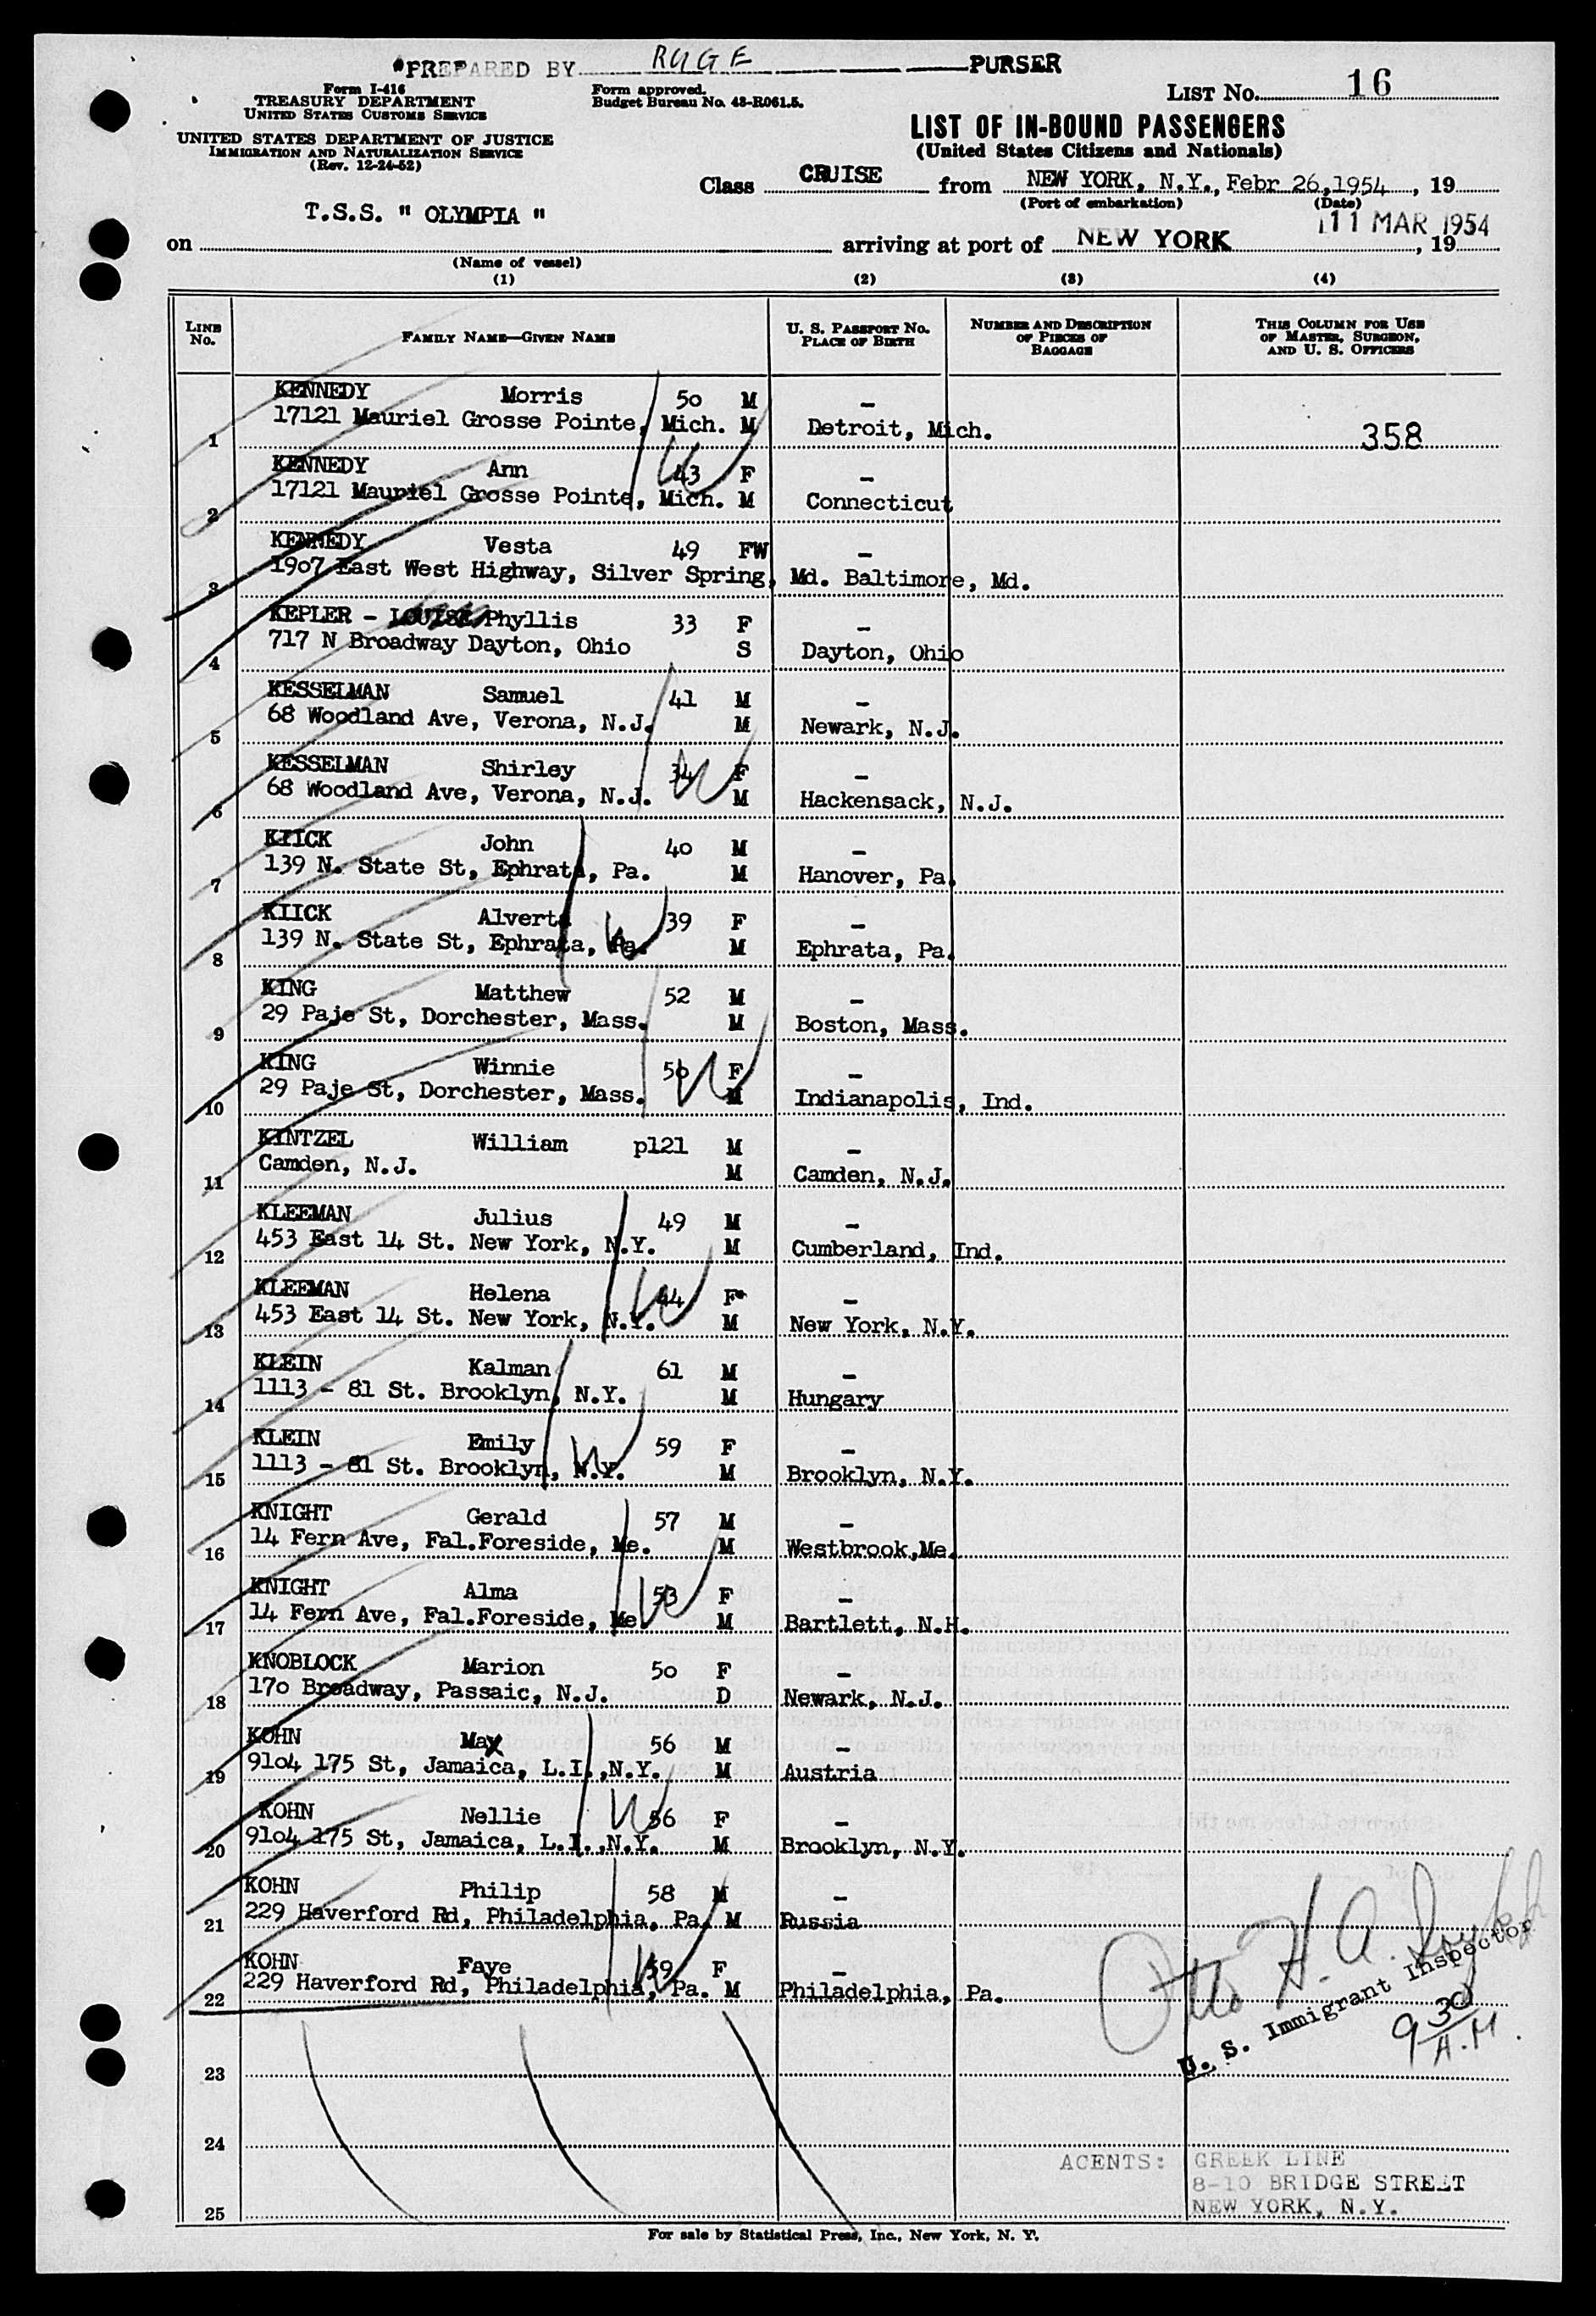 PREPARED BY RUGE PURSER
Form I-416
TREASURY DEPARTMENT
UNITED STATES CUSTOMS SERVICE
UNITED STATES DEPARTMENT OF JUSTICE
IMMIGRATION AND NATURALIZATION SERVICE
(Rev. 12-24-52)
Form approved.
Budget Bureau No. 43-R061.5.
LIST No. 16
LIST OF IN-BOUND PASSENGERS
(United States Citizens and Nationals)
Class CRUISE from NEW YORK, N.Y., Febr 26, 1954, 19
(Port of embarkation) (Date)
T.S.S. " OLYMPIA "
11 MAR 1954
on arriving at port of NEW YORK, 19
(Name of vessel)
(1) (2) (3) (4)
LINE No. FAMILY NAME—GIVEN NAME U. S. PASSPORT No. PLACE OF BIRTH NUMBER AND DESCRIPTION OF PIECES OF BAGGAGE THIS COLUMN FOR USE OF MASTER, SURGEON, AND U. S. OFFICERS
KENNEDY Morris 50 M –
1 17121 Mauriel Grosse Pointe, Mich. M Detroit, Mich. 358
KENNEDY Ann 43 F –
2 17121 Mauriel Grosse Pointe, Mich. M Connecticut
KENNEDY Vesta 49 FW –
3 1907 East West Highway, Silver Spring, Md. Baltimore, Md.
KEPLER – LOUISE Phyllis 33 F –
4 717 N Broadway Dayton, Ohio S Dayton, Ohio
KESSELMAN Samuel 41 M –
5 68 Woodland Ave, Verona, N.J. M Newark, N.J.
KESSELMAN Shirley 34 F –
6 68 Woodland Ave, Verona, N.J. M Hackensack, N.J.
KIICK John 40 M –
7 139 N. State St, Ephrata, Pa. M Hanover, Pa.
KIICK Alverta 39 F –
8 139 N. State St, Ephrata, Pa. M Ephrata, Pa.
KING Matthew 52 M –
9 29 Paje St, Dorchester, Mass. M Boston, Mass.
KING Winnie 50 F –
10 29 Paje St, Dorchester, Mass. M Indianapolis, Ind.
KINTZEL William pl21 M –
11 Camden, N.J. M Camden, N.J.
KLEEMAN Julius 49 M –
12 453 East 14 St. New York, N.Y. M Cumberland, Ind.
KLEEMAN Helena 44 F –
13 453 East 14 St. New York, N.Y. M New York, N.Y.
KLEIN Kalman 61 M –
14 1113 – 81 St. Brooklyn, N.Y. M Hungary
KLEIN Emily 59 F –
15 1113 – 81 St. Brooklyn, N.Y. M Brooklyn, N.Y.
KNIGHT Gerald 57 M –
16 14 Fern Ave, Fal.Foreside, Me. M Westbrook,Me.
KNIGHT Alma 53 F –
17 14 Fern Ave, Fal.Foreside, Me. M Bartlett, N.H.
KNOBLOCK Marion 50 F –
18 170 Broadway, Passaic, N.J. D Newark, N.J.
KOHN Max 56 M –
19 9104 175 St, Jamaica, L.I.,N.Y. M Austria
KOHN Nellie 56 F –
20 9104 175 St, Jamaica, L.I.,N.Y. M Brooklyn, N.Y.
KOHN Philip 58 M –
21 229 Haverford Rd, Philadelphia, Pa. M Russia
KOHN Faye 59 F –
22 229 Haverford Rd, Philadelphia, Pa. M Philadelphia, Pa.
Otto H. A.
U. S. Immigrant Inspector
9 30 A.M.
23
24
25
AGENTS: GREEK LINE
8-10 BRIDGE STREET
NEW YORK, N.Y.
For sale by Statistical Press, Inc., New York, N. Y.